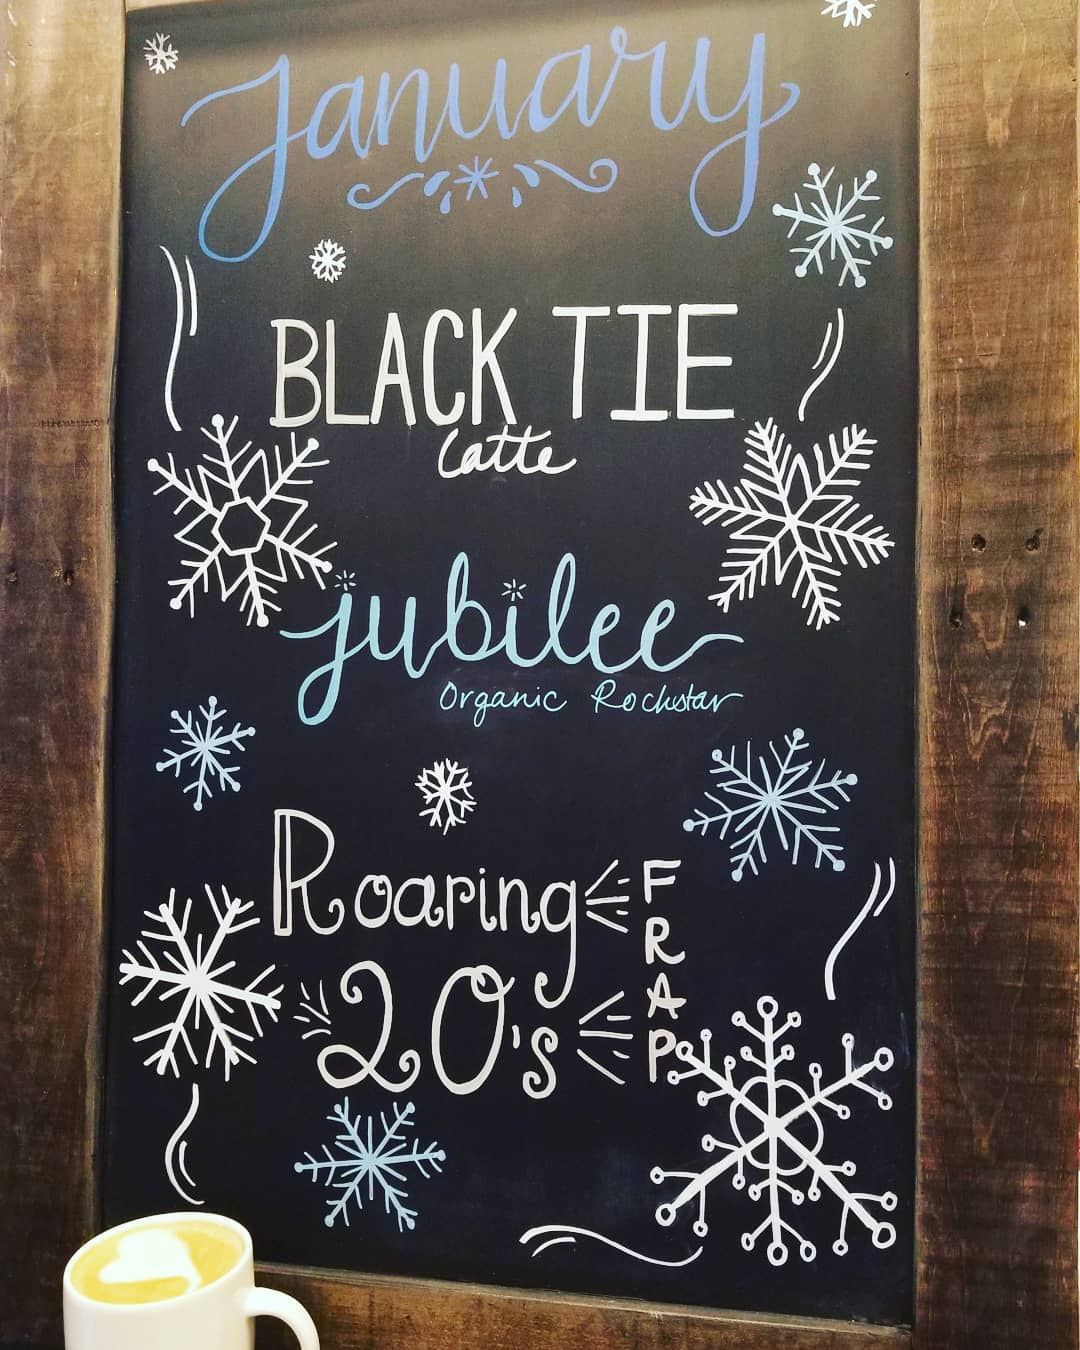 January
BLACK TIE
Latte
jubilee
Organic Rockstar
Roaring
20's
FRAP